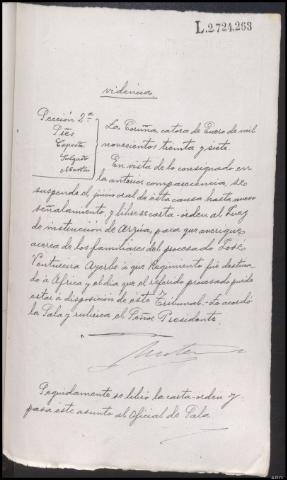 L.2724.263
Videncia
Sección 2ª
Srés
Cepeda
Salgado
La Coruña catorce de Enero de mil
novecientos treinta y siete
En vista de lo consignado en
la anterior comparecencia, se
suspende el juicio oral de esta causa hasta nuevo
señalamiento, y líbrese carta-orden al Juez
de instrucción de Arzúa, para que averigüe
acerca de los familiares del procesado José
Ventureira a que Regimiento fué destina
do á Africa y el dia que el referido procesado puede
estar á disposición de este Tribunal.- Lo acordó
la Sala y rubrica el Señor Presidente.
Seguidamente se libró la carta-orden y
pasa este asunto al Oficial de Sala